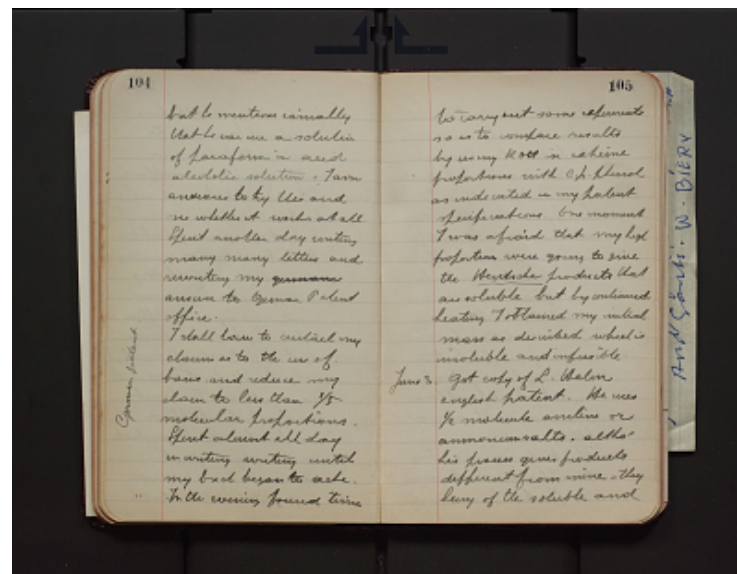 104
but he mentions casually
that he can use a solution
of paraform in acid
alcoholic solution. I am
anxious to try this and
see whether it works at all
Spent another day writing
many many letters and
rewriting my german
answer to German Patent
office.
German patent
I shall have to curtail my
claims as to the use of
bases and reduce my
claim to less than 1/5
molecular proportions.
Spent almost all day
in writing writing until
my back began to ache.
In the evening found time
105
to carry out some experiments
so as to compare results
by using KOH in extreme
proportions with phenol
as indicated in my patent
specifications. One moment
I was afraid that my high
proportions were going to give
the products that
are soluble but by continued
heating I obtained my initial
mass as described which is
insoluble and infusible
June 3. Got copy of L.
english patent. He uses
molecule or
ammoniacsalts. altho'
his process gives products
different from mine. they
being of the soluble and
W. BIERY